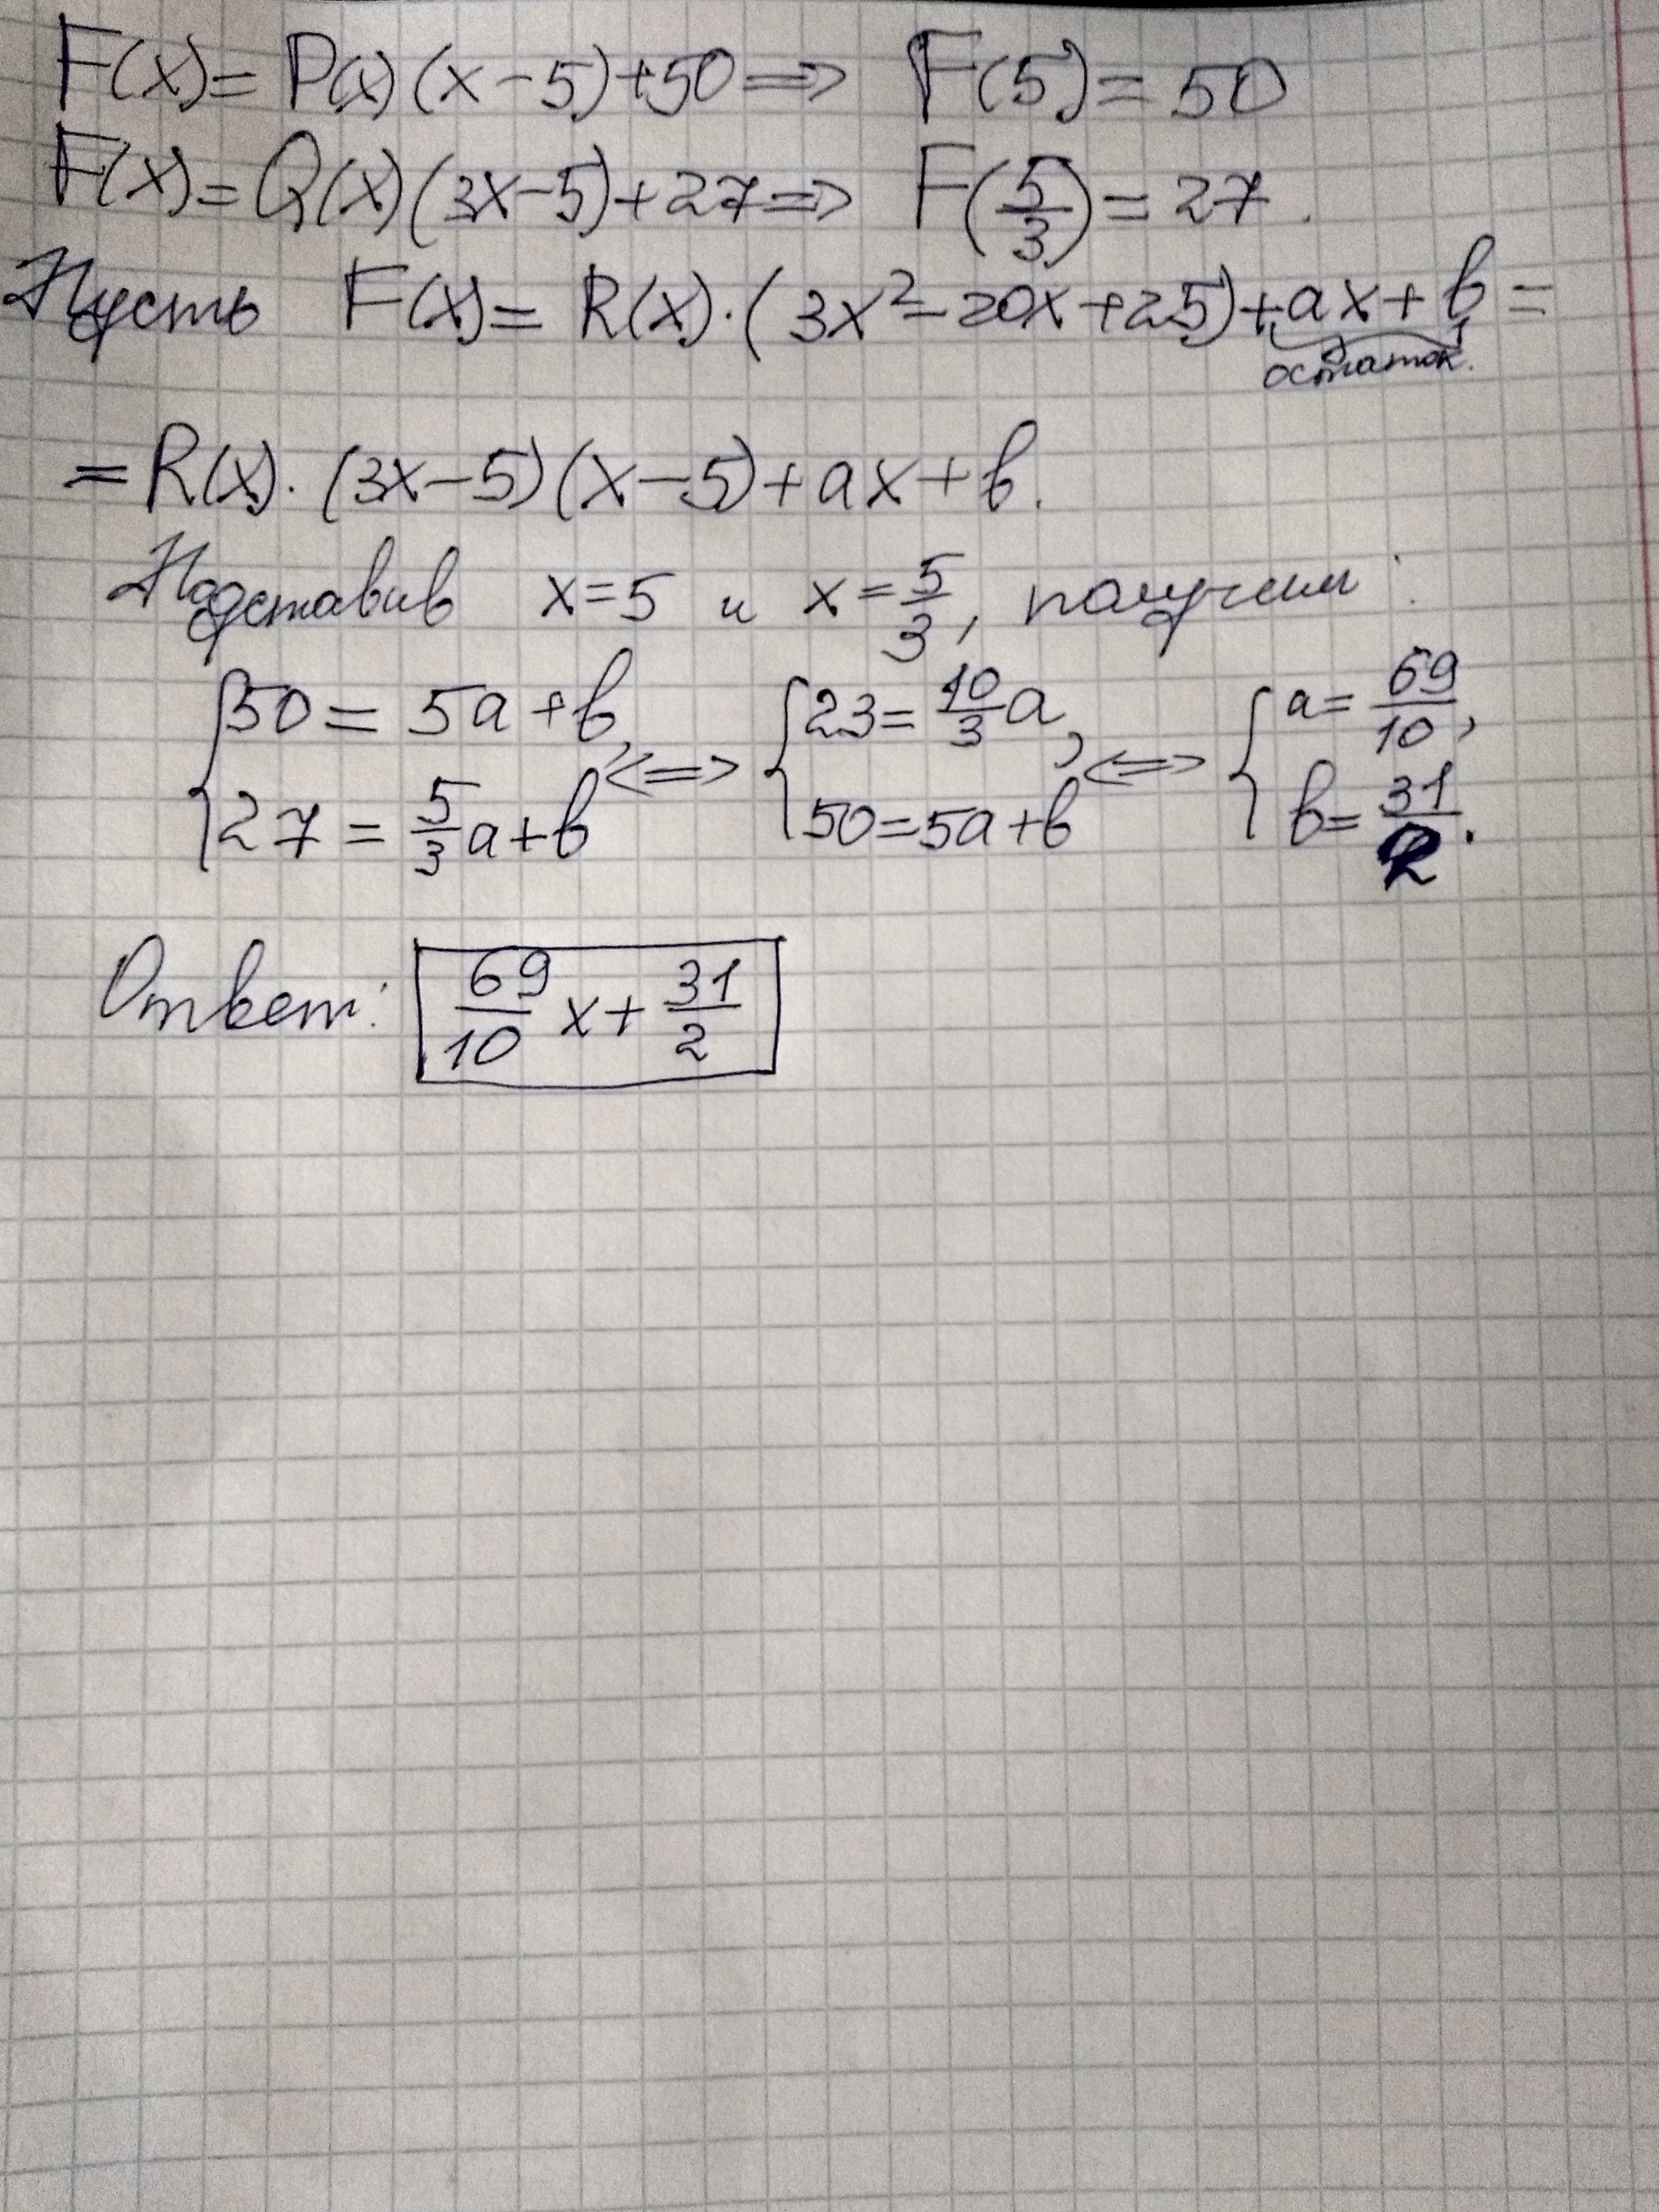 F(x) = P(x)(x-5)+50 => F(5) = 50
F(x) = Q(x)(3x-5)+27 => F(5/3) = 27.
Пусть F(x) = R(x)·(3x²-20x+25)+ax+b =
остаток.
= R(x)·(3x-5)(x-5)+ax+b.
Подставив x=5 и x=5/3, получим:
{50 = 5a+b, <=> {23 = 10/3 a, <=> {a = 69/10,
{27 = 5/3 a+b {50 = 5a+b {b = 31/2.
Ответ: 69/10 x + 31/2